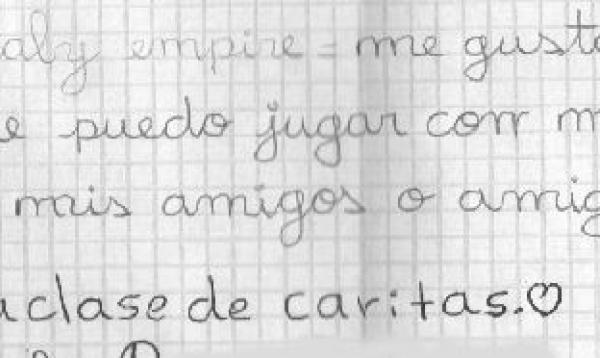 aly empire = me gusta
e puedo jugar con m
mis amigos o amig
clase de caritas.♡